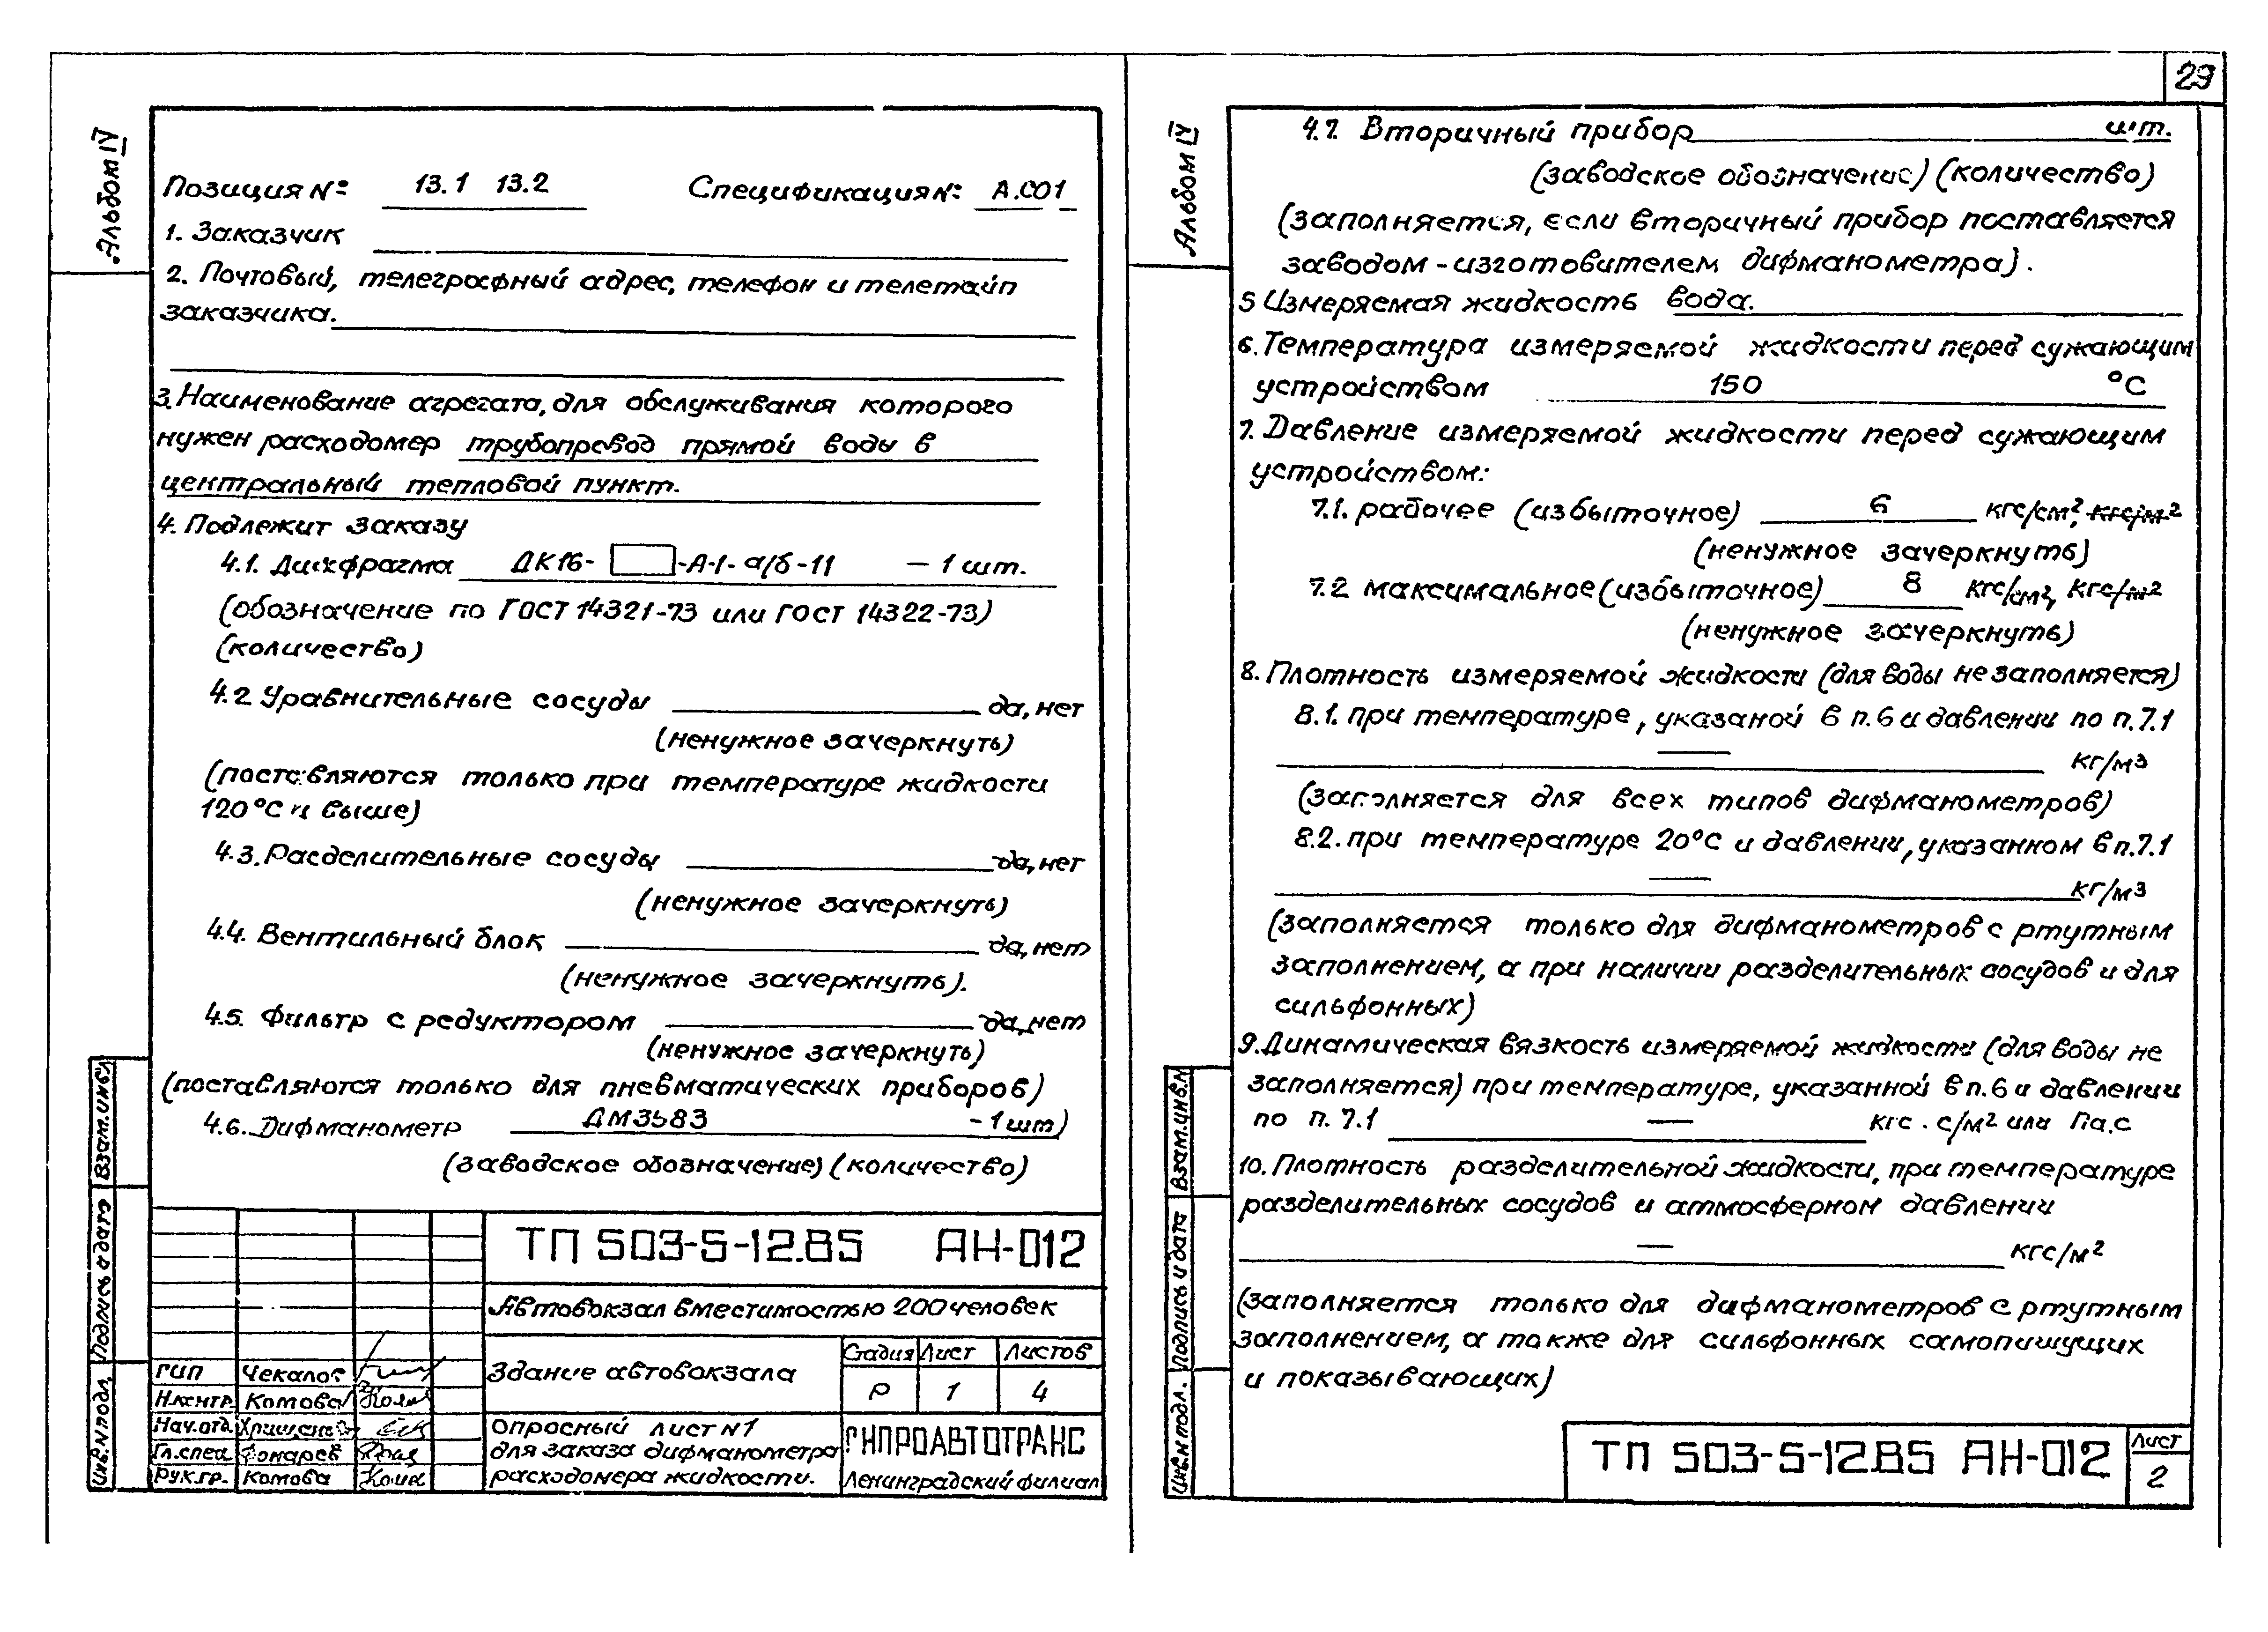 29
Альбом IV
Позиция № 13.1 13.2 Спецификация № А.СО1
1. Заказчик
2. Почтовый, телеграфный адрес, телефон и телетайп
заказчика.
3. Наименование агрегата, для обслуживания которого
нужен расходомер трубопровод прямой воды в
центральный тепловой пункт.
4. Подлежит заказу
4.1. Диафрагма ДК16- -А-1-а/б-11 — 1 шт.
(обозначение по ГОСТ 14321-73 или ГОСТ 14322-73)
(количество)
4.2 Уравнительные сосуды да, нет
(ненужное зачеркнуть)
(поставляются только при температуре жидкости
120°С и выше)
4.3. Расделительные сосуды да, нет
(ненужное зачеркнуть)
4.4. Вентильный блок да, нет
(ненужное зачеркнуть).
4.5. Фильтр с редуктором да, нет
(ненужное зачеркнуть)
(поставляются только для пневматических приборов)
4.6. Дифманометр ДМ3583 - 1 шт)
(заводское обозначение) (количество)
ТП 503-5-12.85 АН-012
Автовокзал вместимостью 200 человек
Здание автовокзала
Стадия Лист Листов
Р 1 4
Опросный лист №1
для заказа дифманометра
расходомера жидкости.
ГИПРОАВТОТРАНС
Ленинградский филиал
ГИП Чекалов
Н.контр. Комова
Нач.отд.
Гл.спец. Фонарев
Рук.гр. Комова
Взам.инв.№
Подпись и дата
Инв.№ подл.
Альбом IV
4.7. Вторичный прибор шт.
(заводское обозначение) (количество)
(заполняется, если вторичный прибор поставляется
заводом-изготовителем дифманометра).
5 Измеряемая жидкость вода.
6. Температура измеряемой жидкости перед сужающим
устройством 150 °С
7. Давление измеряемой жидкости перед сужающим
устройством:
7.1. рабочее (избыточное) 6 кгс/см², кгс/м²
(ненужное зачеркнуть)
7.2 максимальное (избыточное) 8 кгс/см², кгс/м²
(ненужное зачеркнуть)
8. Плотность измеряемой жидкости (для воды не заполняется)
8.1. при температуре, указаной в п.6 и давлении по п.7.1
— кг/м3
(заполняется для всех типов дифманометров)
8.2. при температуре 20°С и давлении, указанном в п.7.1
— кг/м3
(заполняется только для дифманометров с ртутным
заполнением, а при наличии разделительных сосудов и для
сильфонных)
9. Динамическая вязкость измеряемой жидкости (для воды не
заполняется) при температуре, указанной в п.6 и давлении
по п. 7.1 — кгс . с/м² или Па.с
10. Плотность разделительной жидкости, при температуре
разделительных сосудов и атмосферном давлении
— кгс/м²
(заполняется только для дифманометров с ртутным
заполнением, а также для сильфонных самопишущих
и показывающих)
ТП 503-5-12.85 АН-012
Лист
2
Взам.инв.№
Подпись и дата
Инв.№ подл.